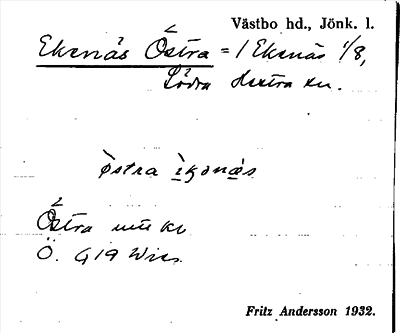 Västbo hd., Jönk. l.
Ekenäs Östra = 1 Ekenäs 1/8,
Södra Hestra sn.
östra ìkənæs
Östra
Ö. G19
Fritz Andersson 1932.